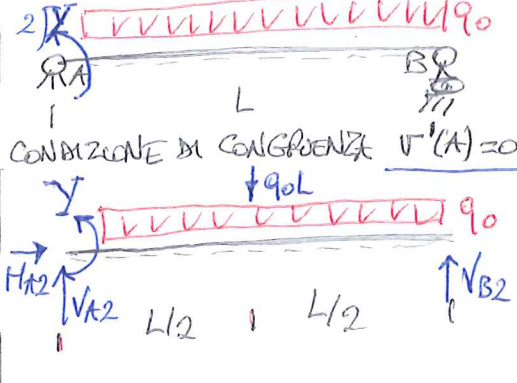 2) X q₀
A B
L
CONDIZIONE DI CONGRUENZA v'(A)=0
q₀L
Y q₀
H_A2 V_A2 L/2 L/2 V_B2